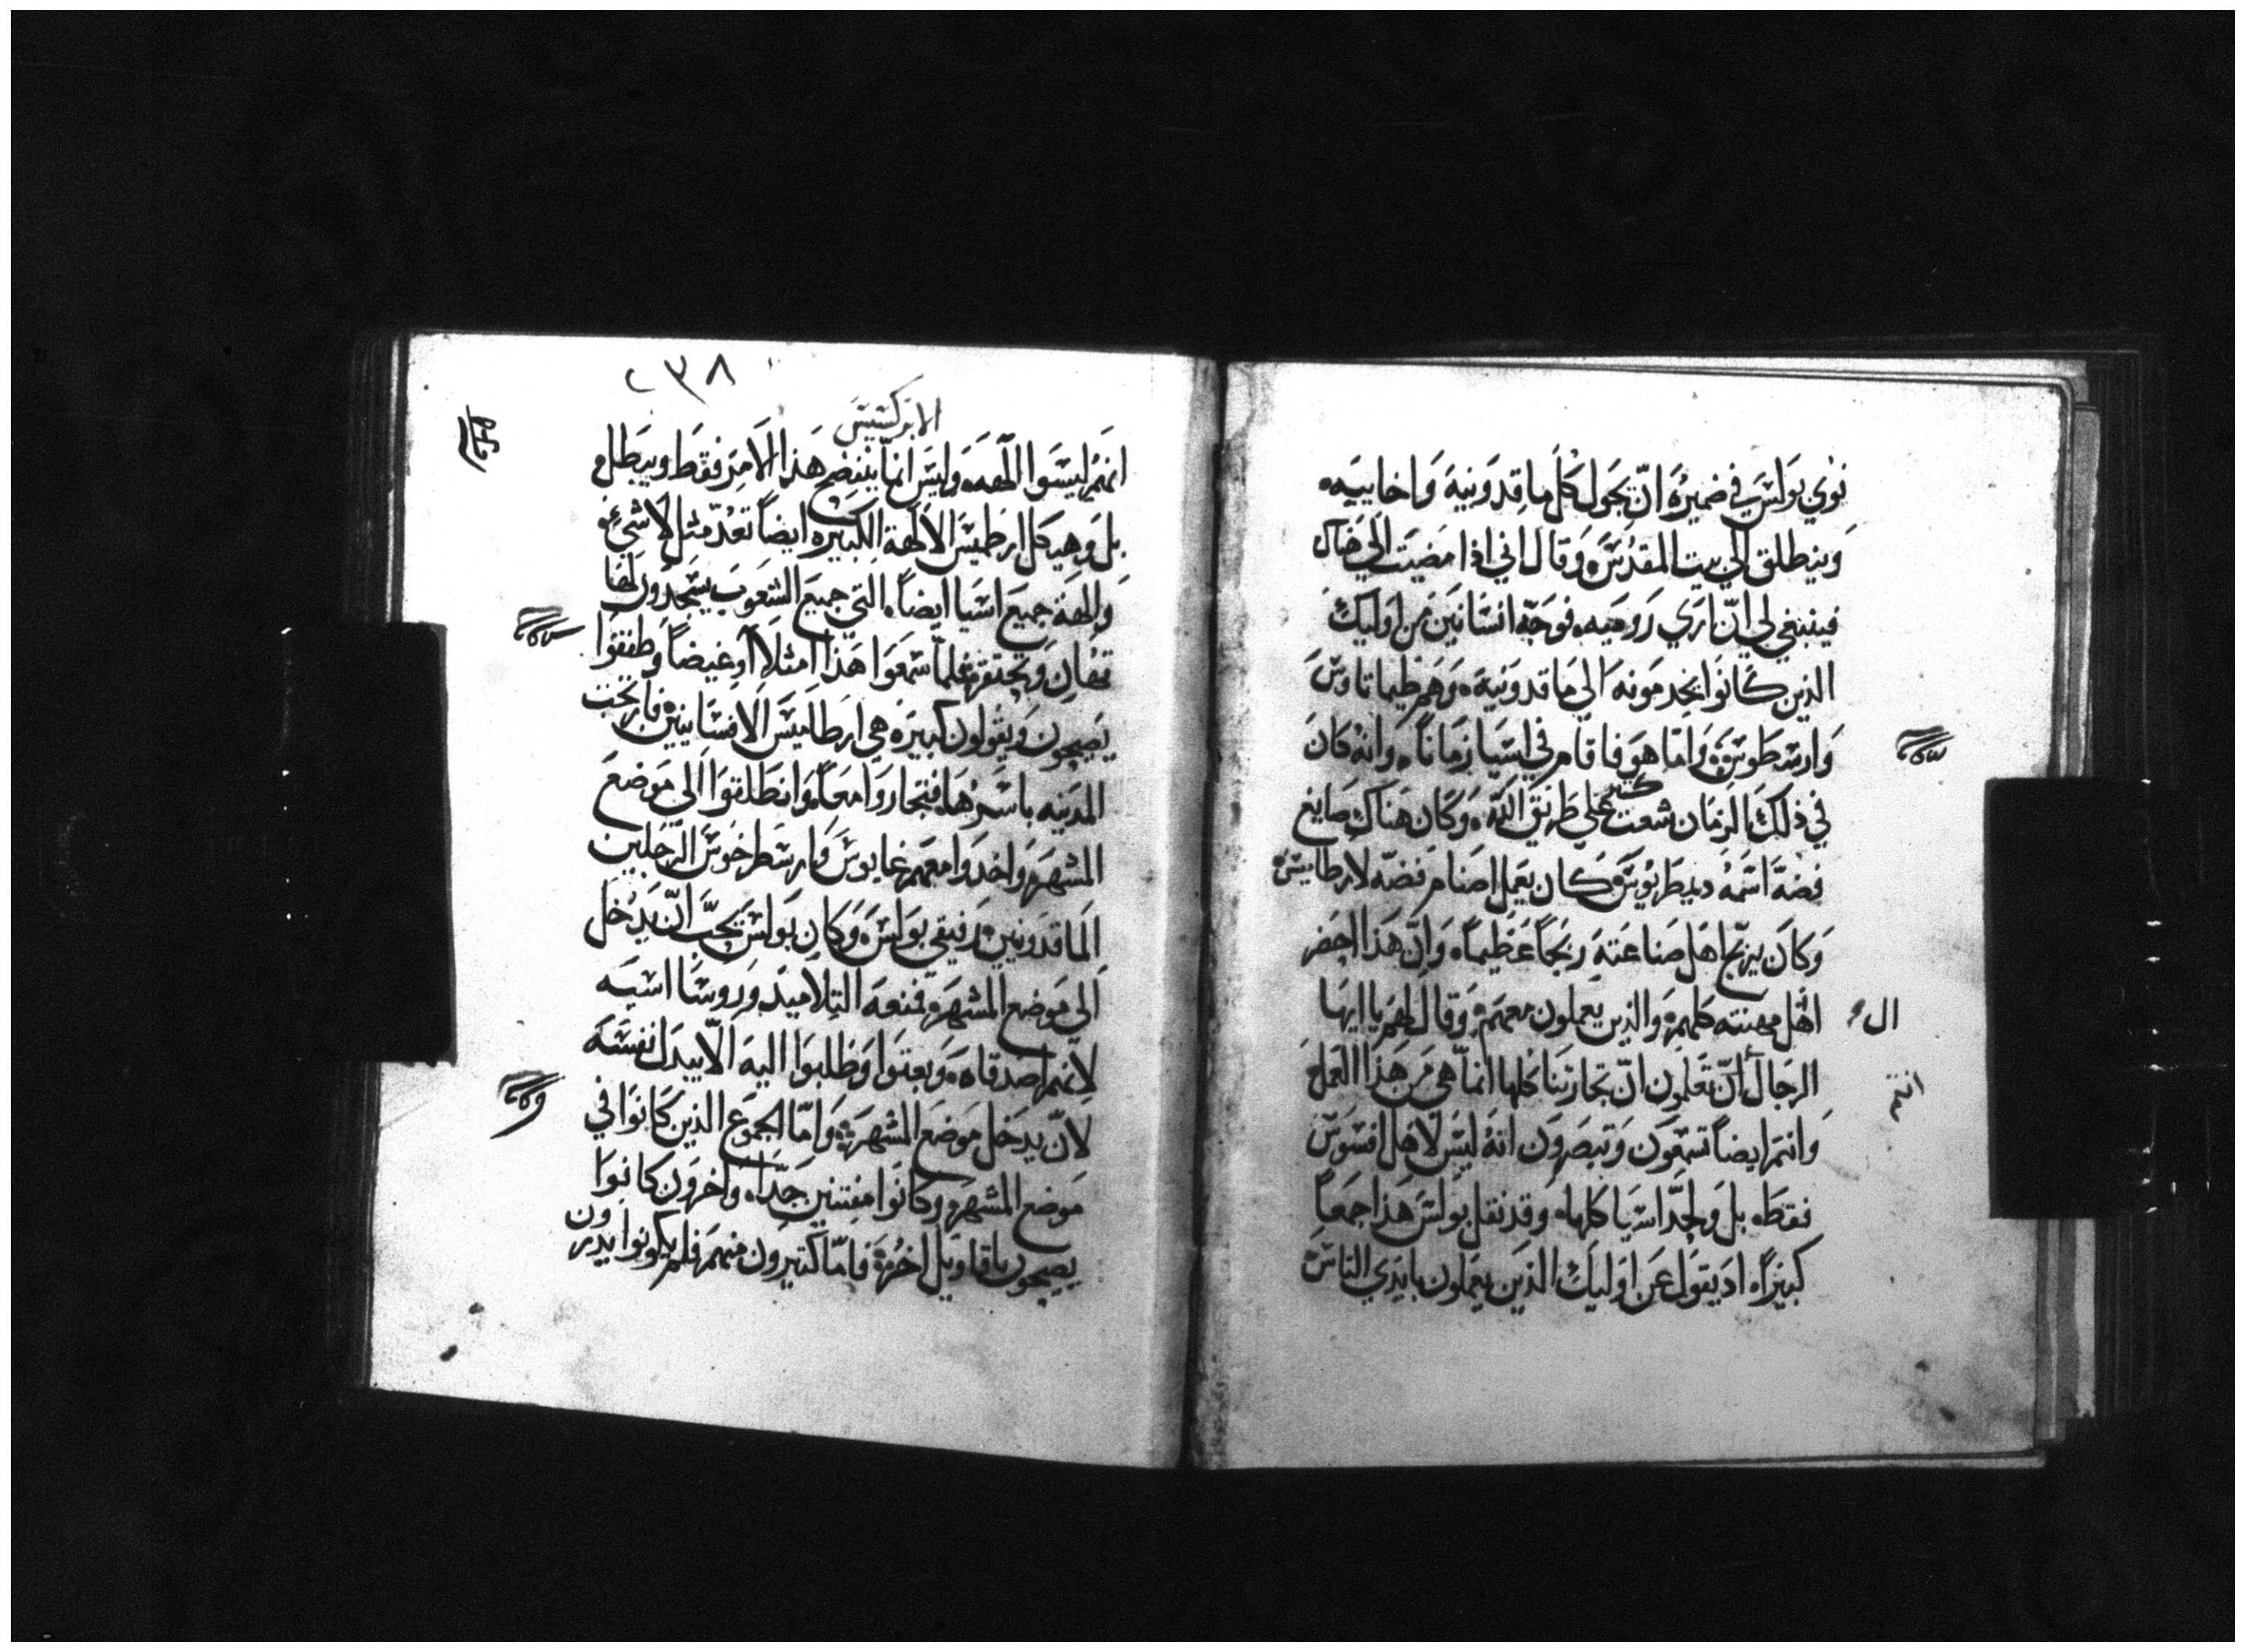 نوي بولس في ضميره ان يجول كل ماقدونية واخاييه
وينطلق الي بيت المقدس وقال اني اذا مضيت الي هناك
فينبغي لي ان اري روميه فوجه انسانين من اوليك
الذين كانوا يخدمونه الي ماقدونيه وهم طيماتاوس
وارسطوس واما هو فاقام في اسيا زمانا وانه كان
في ذلك الزمان شعث كثير علي طريق الله وكان هناك صايغ
فضة اسمه ديمطريوس كان يعمل اصنام فضه لارطاميس
وكان يربح اهل صناعته ربحا عظيما وان هذا احضر
اهل مهنته كلهم والذين يعملون معهم وقال لهم يا ايها
ال
الرجال ان تعلمون ان تجارتنا كلها انما هي من هذا العمل
انتم
وانتم ايضا تسمعون وتبصرون انه ليس لاهل افسوس
فقط بل وجد اسيا كلها وقد نقل بولس هذا جمعا
كبيرا اد يقول عن اوليك الذين يعملون بايدي الناس
٢٣٨
الابركسيس
انهم ليسوا الهه وليس انما ينفضح هذا الامر فقط ويبطل
بل وهيكل ارطميس الالهة الكبيره ايضا تعد مثل لا شئ
والهة جميع اسيا ايضا التي جميع الشعوب يسجدون لها
تهان وتحتقر فلما سمعوا هذا امتلاوا غيضا وطفقوا
يصيحون ويقولون كبيره هي ارطاميس الافسايين فارتجت
المدينه باسرها فتجاروا معا وانطلقوا الي موضع
المشهره واخدوا معهم غايوس وارسطرخوس الرجلين
الماقدونيين رفيقي بولس وكان بولس يحب ان يدخل
الي موضع المشهره فمنعه التلاميد وروسا اسيه
لانهم اصدقاه وبعتوا وطلبوا اليه الا يبدل نفسه
لان يدخل موضع المشهره واما الجموع الذين كانوا في
موضع المشهره وكانوا مفتنين جدا واخرون كانوا
يصيحون باقاويل اخره فاما كتيرون منهم فلم يكونوا يدرون